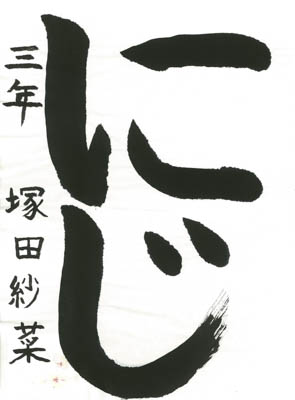 にじ
三年 塚田紗菜